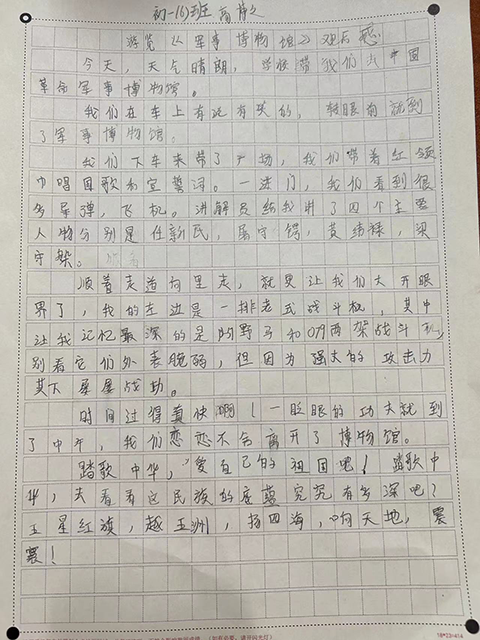 初一16班
游览《军事博物馆》观后感
今天，天气晴朗，学校带我们去中国
革命军事博物馆。
我们在车上有说有笑的，转眼间就到
了军事博物馆。
我们下车来带了广场，我们带着红领
巾唱国歌和宣誓词。一进门，我们看到很
多导弹，飞机。讲解员给我讲了四个主要
人物分别是任新民，屠守锷，黄纬禄，梁
守槃。
顺着走道向里走，就更让我们大开眼
界了，我的左边是一排老式战斗机，其中
让我记忆最深的是的野马和017两架战斗机，
别看它们外表脆弱，但因为强大的攻击力
莫下屡屡战功。
时间过得真快啊！一眨眼的功夫就到
了中午，我们恋恋不舍离开了博物馆。
踏歌中华，爱自己的祖国吧！踏歌中
华，去看看这民族的底蕴究竟有多深吧？
五星红旗，越五洲，扬四海，响天地，震
震！
18*23=414